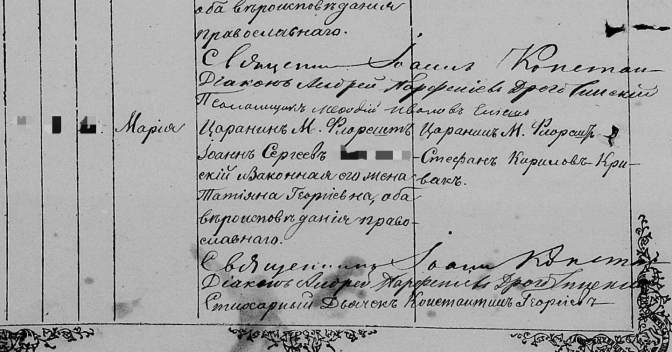 оба вѣроисповѣданія
православнаго.
Священникъ Іоаннъ
Діаконъ Андрей Парѳеніевъ
Псаломщикъ Меѳодій Ивановъ
Марія
Царанинъ М. Флорештъ
Іоаннъ Сергеевъ
скій и законная его жена
Татіяна Георгіевна, оба
вѣроисповѣданія право-
славнаго.
Царанинъ М. Флорештъ
Стефанъ Кириловъ Кри-
вакъ.
Священникъ Іоаннъ
Діаконъ Андрей Парѳеніевъ
Стихарный Дьячекъ Константинъ Георгіевъ